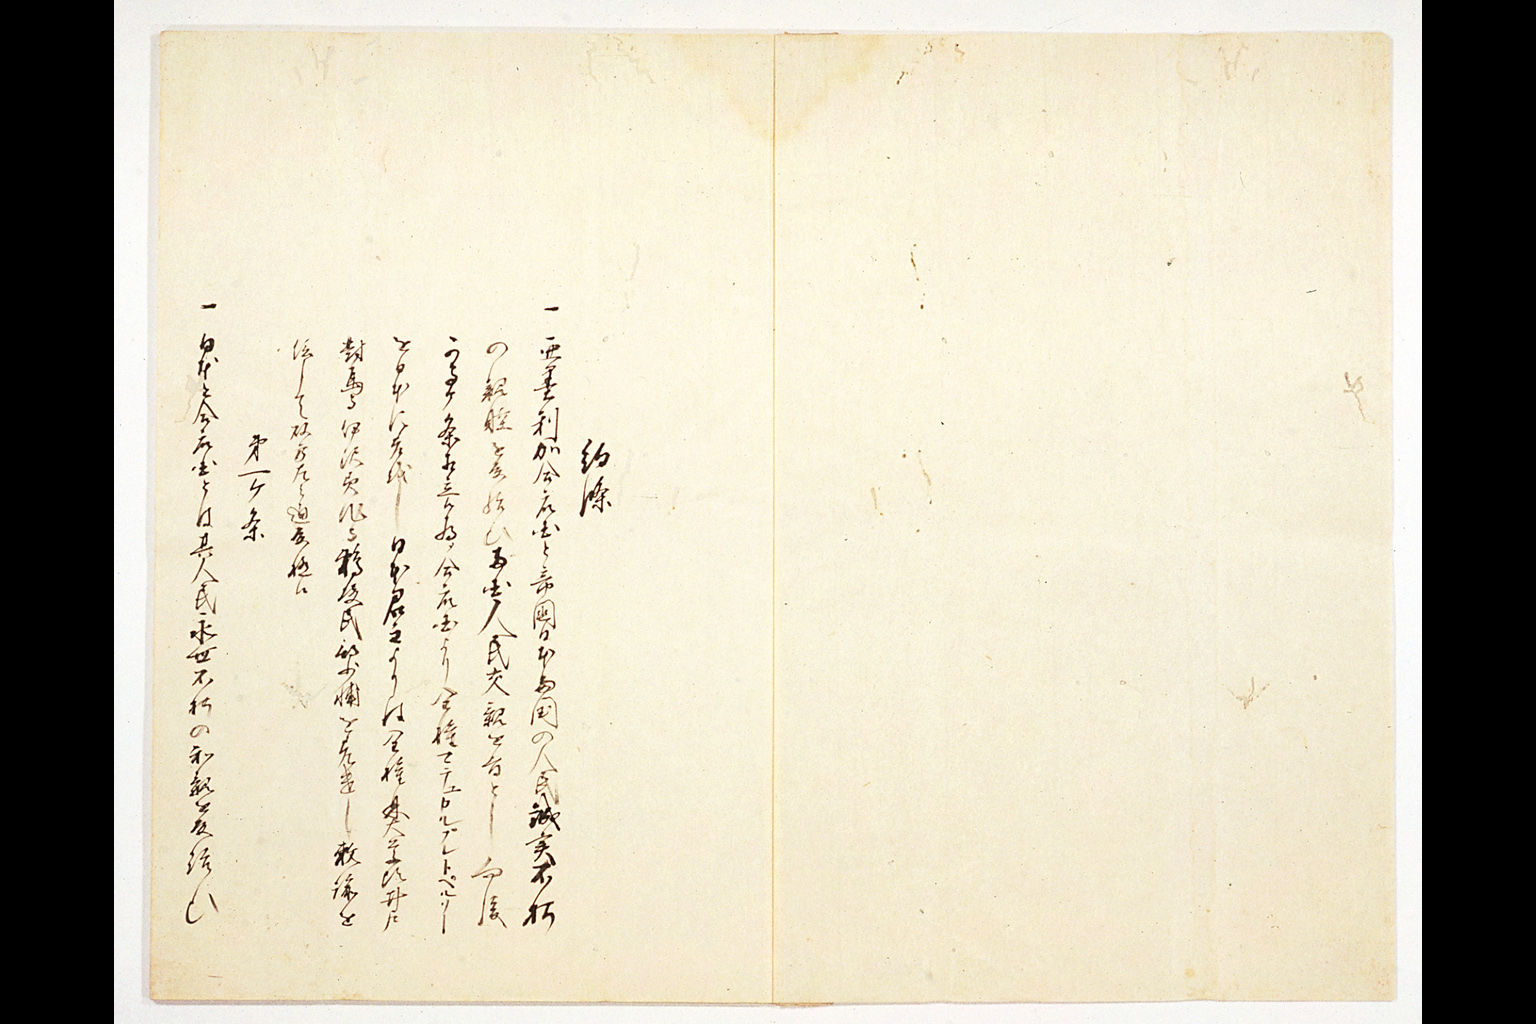 約條
一 亜墨利加合衆国と帝國日本両国の人民誠実不朽
の親睦を取結ひ両国人民交親を旨とし向後
可守ケ条相立候為合衆国より全権マテユカルブレトペルリー
を日本に差越し日本君主よりは全権林大学頭井戸
對馬守伊沢美作守鵜殿民部少輔を差遣し敕諭を
信して双方左之通取極候
第一ケ条
一 日本と合衆国とは其人民永世不朽の和親を取結ひ